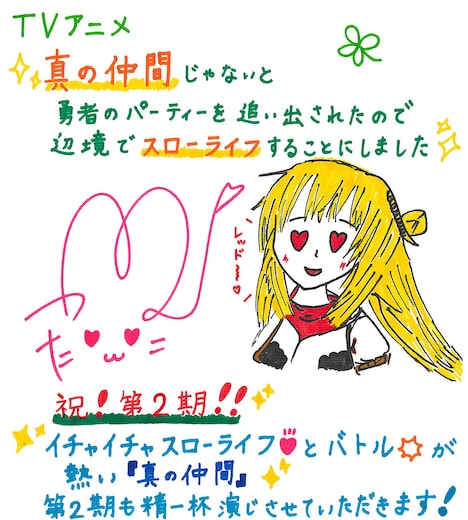 TVアニメ
真の仲間じゃないと
勇者のパーティーを追い出されたので
辺境でスローライフすることにしました
レッド〜♡
祝!第2期!!
イチャイチャスローライフ♥とバトル✩が
熱い『真の仲間』
第2期も精一杯演じさせていただきます!